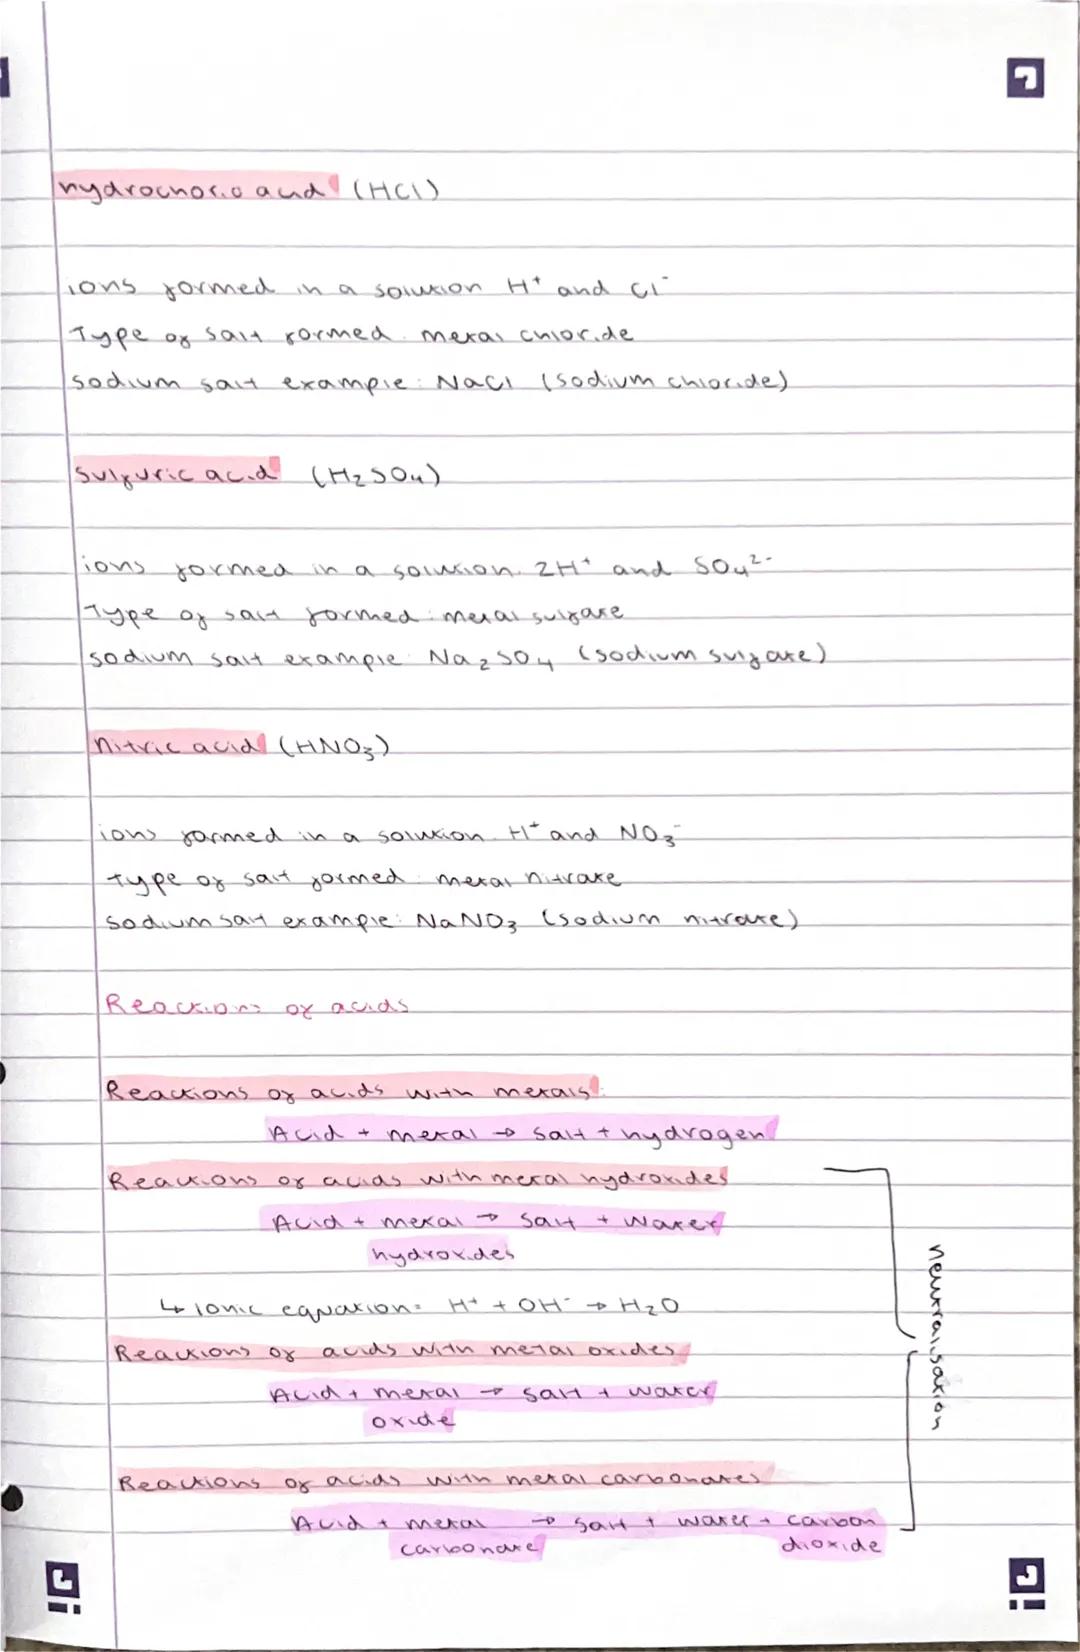 hydrochoric acid (HCl)
ions formed in a solution H⁺ and Cl⁻
Type of salt formed. metal chloride
sodium salt example: NaCl (sodium chloride)
sulfuric acid (H₂SO₄)
ions formed in a solution. 2H⁺ and SO₄²⁻
Type of salt formed: metal sulfate
sodium salt example Na₂SO₄ (sodium sulfate)
nitric acid (HNO₃)
ions formed in a solution. H⁺ and NO₃⁻
Type of salt formed metal nitrate
Sodium salt example: NaNO₃ (sodium nitrate)
Reactions of acids
Reactions of acids with metals:
Acid + metal → salt + hydrogen
Reactions of acids with metal hydroxides
Acid + metal → salt + water
hydroxides
↳ ionic equation: H⁺ + OH⁻ → H₂O
Reactions of acids with metal oxides
Acid + metal → salt + water
oxide
neutralisation
Reactions of acids with metal carbonates
Acid + metal → salt + water + carbon
carbonate dioxide